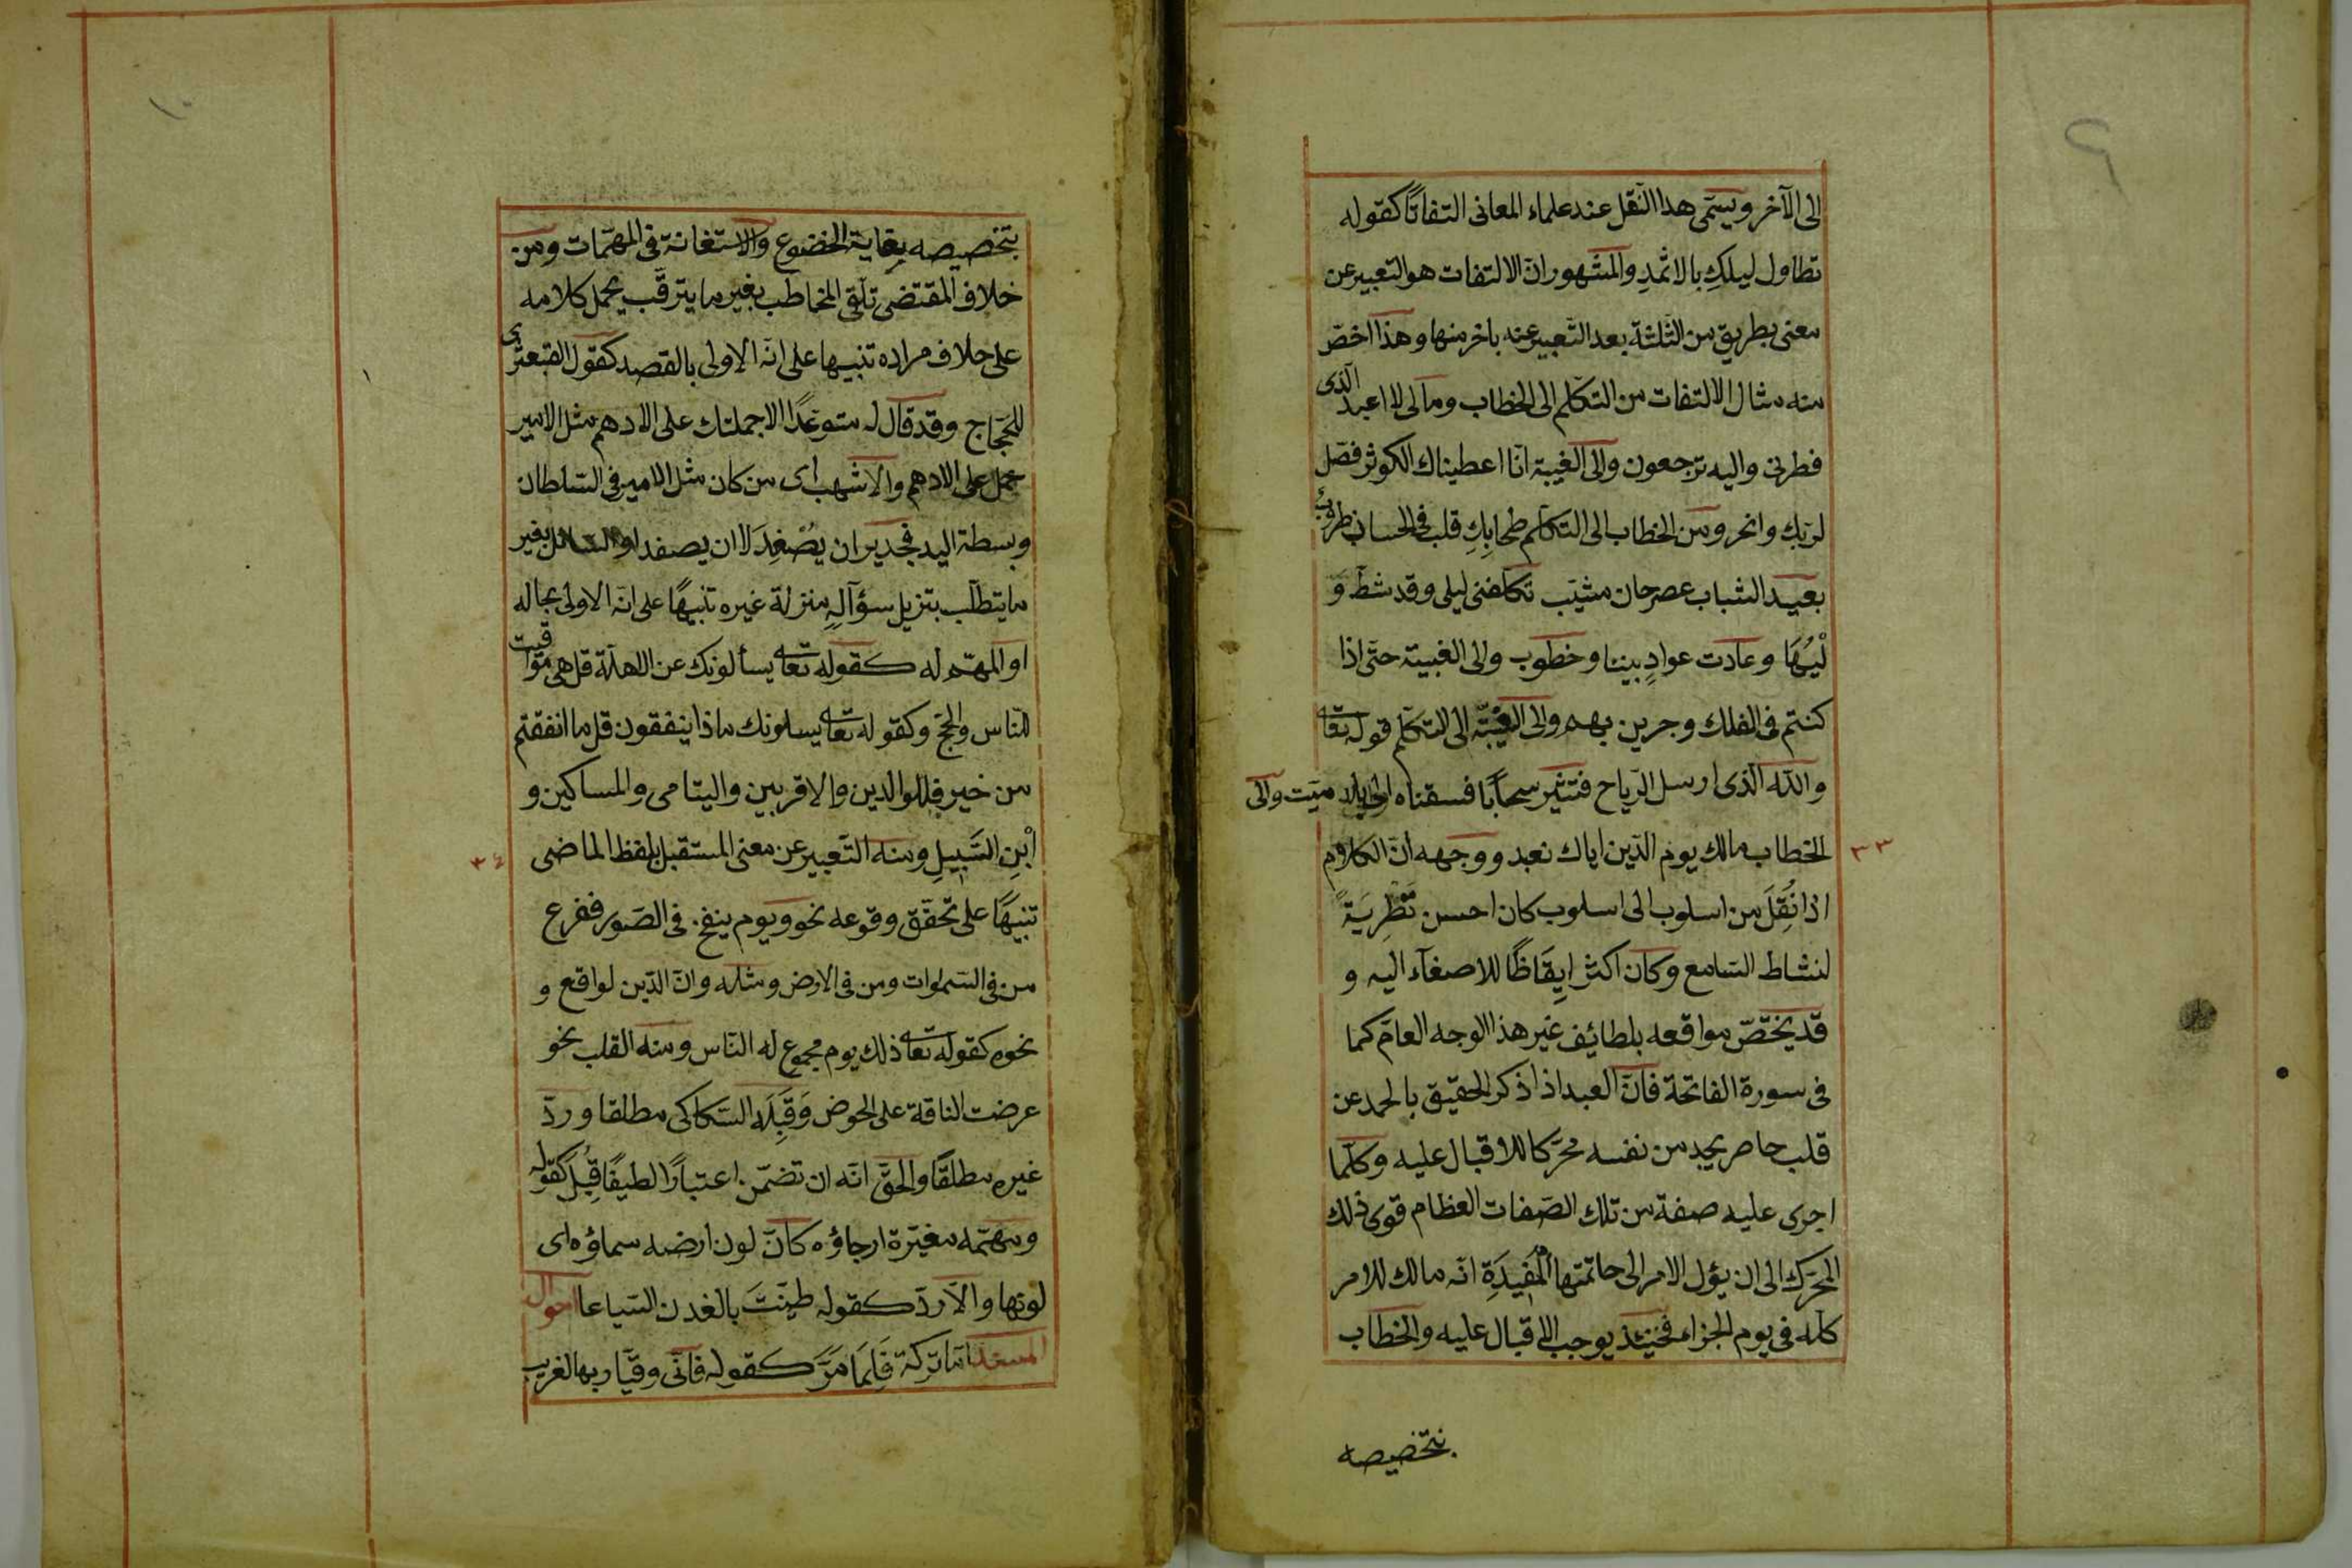 ٩
الى الآخر ويسمّى هذا النّقل عند علماء المعانى التفاتًا كقوله
تطاول ليلكِ بالاثمدِ والمشهور انّ الالتفات هو التعبير عن
معنى بطريق من الثّلثة بعد التّعبير عنه باخر منها وهذا اخصّ
منه مثال الالتفات من التكلّم الى الخطاب ومالى لا اعبد الّذى
فطرنى واليه ترجعون والى الغيبة انّا اعطيناك الكوثر فصّل
لربّك وانحر ومن الخطاب الى التكلّم طحابِكِ قلب فى الحسان طروبُ
بعيد الشباب عصر حان مشيب تكلّفنى ليلى وقد شطّ وَ
لْيُهَا وعادت عوادٍ بيننا وخطوب والى الغيبة حتّى اذا
كنتم فى الفلك وجرين بهم والى الغيْبَة الى التكلّم قوله تعالى
والله الّذى ارسل الرّياح فتثير سحابًا فسقناه الى بلد ميّت والى
الخطاب مالك يوم الدّين اياك نعبد ووجهه انّ الكلام
٣٣
اذا نُقِلَ من اسلوب الى اسلوب كان احسن تَطْرِيَةً
لنشاط السّامع وكان اكثر اِيقَاظًا للاصغآء اليه و
قد يختصّ مواقعه بلطائف غير هذا الوجه العامّ كما
فى سورة الفاتحة فانّ العبد اذا ذكر الحقيق بالحمد عن
قلب حاصر يجد من نفسه محرّكا للاقبال عليه وكلّما
اجرى عليه صفة من تلك الصّفات العظام قوى ذلك
المحرّك الى ان يؤل الامر الى خاتمتها المُفيدَةِ انّه مالك للامر
كلّه فى يوم الجزاء فحينئذ يوجب الاقبال عليه والخطاب
بتخصيصه
١٠
بتخصيصه بغاية الخضوع والاستغانة فى المهمّات ومن
خلاف المقتضى تلقّى المخاطب بغير ما يترقّب بحمل كلامه
على خلاف مراده تنبيها على انّه الاولى بالقصد كقول القبعثرى
للحجّاج وقد قال له متوعّدًا الاجملنّك على الادهم مثل الامير
حمل على الادهم والاشهب اى من كان مثل الامير فى السّلطان
وبسطة اليد فجدير ان يُصْفِدَ لا ان يصفد او السائل بغير
ما يتطلّب بتزيل سؤآلهِ منزلة غيره تنبيهًا على انّه الاولى بحاله
او المهمّ له كقوله تعالى يسألونك عن الاهلّة قل هى مواقيت
للنّاس والحجّ وكقوله تعالى يسلونك ماذا ينفقون قل ما انفقتم
من خير فللوالدين والاقربين واليتامى والمساكين و
اْبْنِ السَّبِيلِ ومنه التّعبير عن معنى المستقبل بلفظ الماضى
٣٤
تنبيهًا على تحقّق وقوعه نحو ويوم ينفخ فى الصّور ففزع
من فى السّموات ومن فى الارض ومثله وانّ الدّين لواقع و
نحوه كقوله تعالى ذلك يوم مجموع له النّاس ومنه القلب نحو
عرضت الناقة على الحوض وَقَبِلَه السّكاكى مطلقا وردّ
غيره مطلقًا والحقّ انّه ان تضمّن اعتبارًا لطيفًا قُبِلَ كقوله
ومهمّه مغبّرة ارجاؤه كانّ لون ارضه سماؤه اى
لونها والّا ردّ كقوله طيّنتَ بالفدن السّياعا احوال
المسند امّا تركه فَلِمَا مَرَّ كقوله فانّى وقيّار بها لغريب